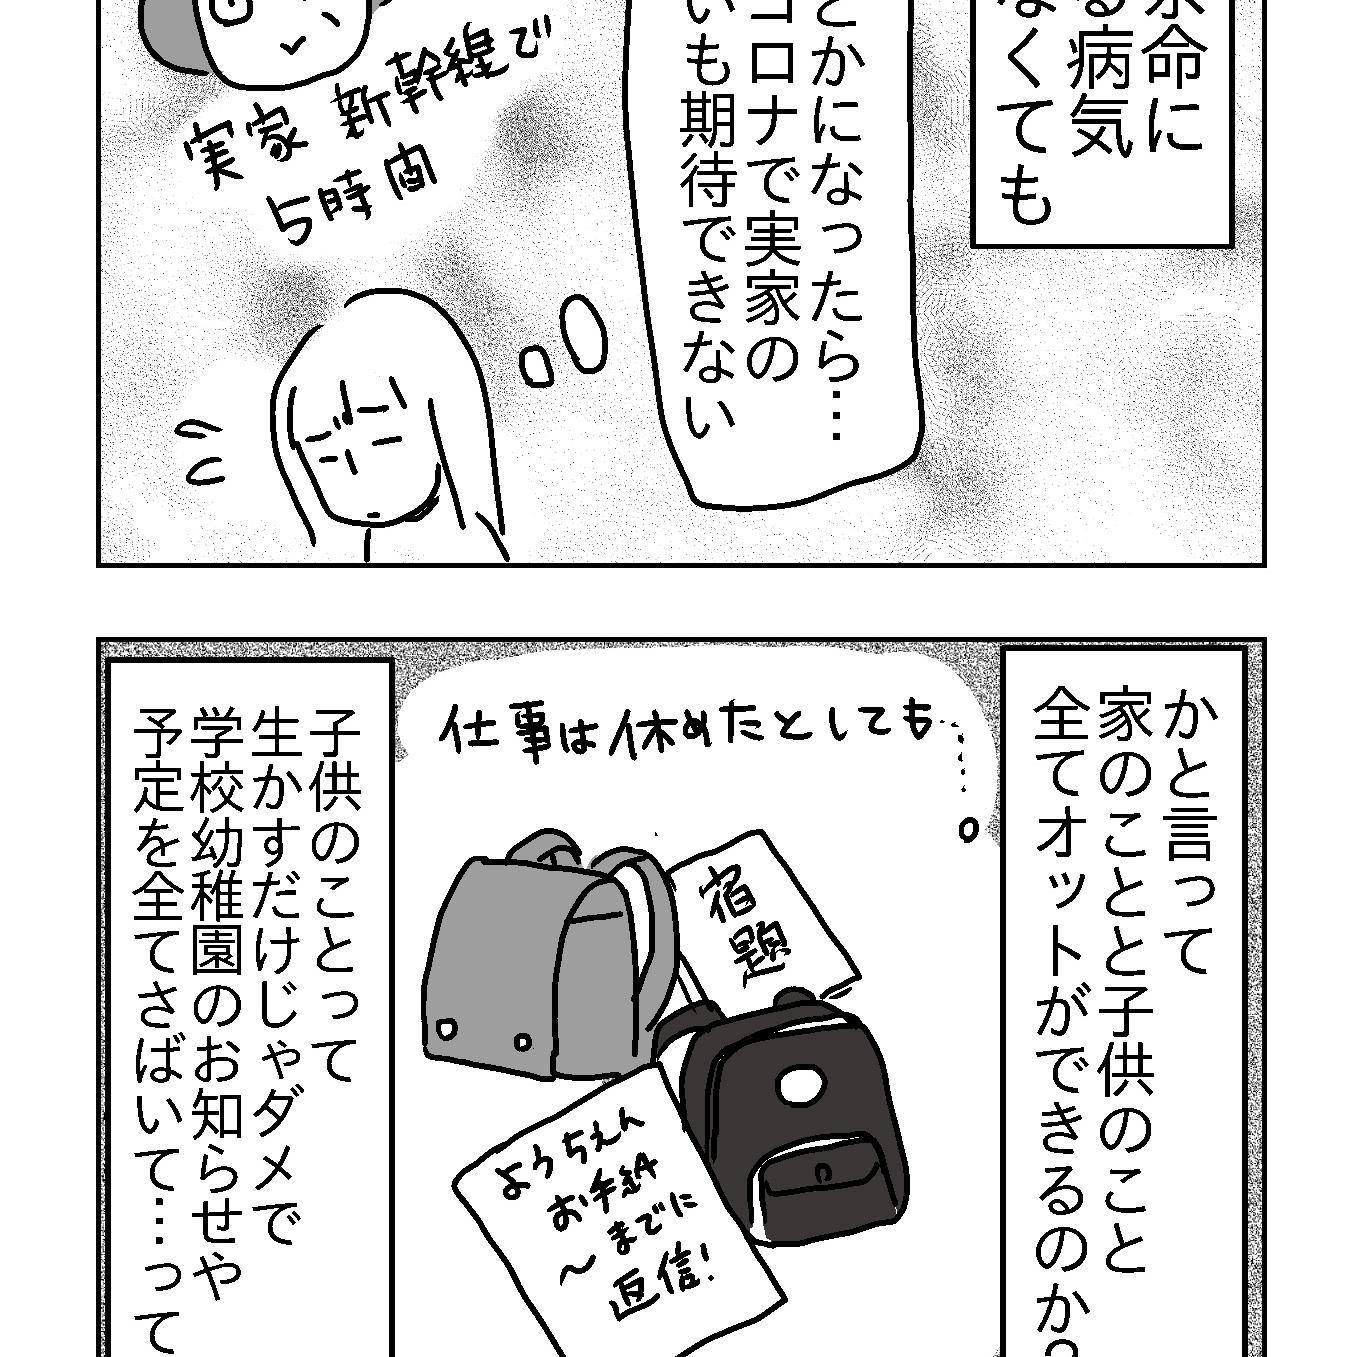 命に
る病気
なくても
とかになったら…
コロナで実家の
いも期待できない
実家 新幹線で
5時間
かと言って
家のことと子供のこと
全てオットができるのか?
仕事は休めたとしても…
宿
題
ようちえん
お手紙
〜までに
返信!
子供のことって
生かすだけじゃダメで
学校幼稚園のお知らせや
予定を全てさばいて…って